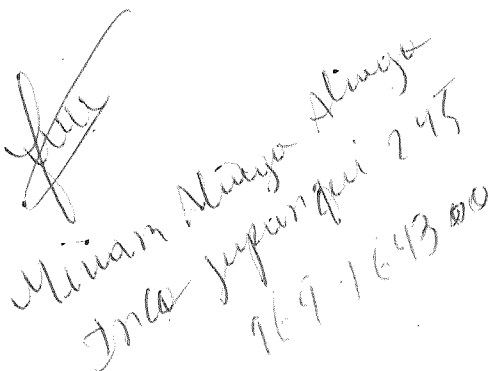 Miriam Aliaga Aliaga
Inca yupanqui 245
969-164300